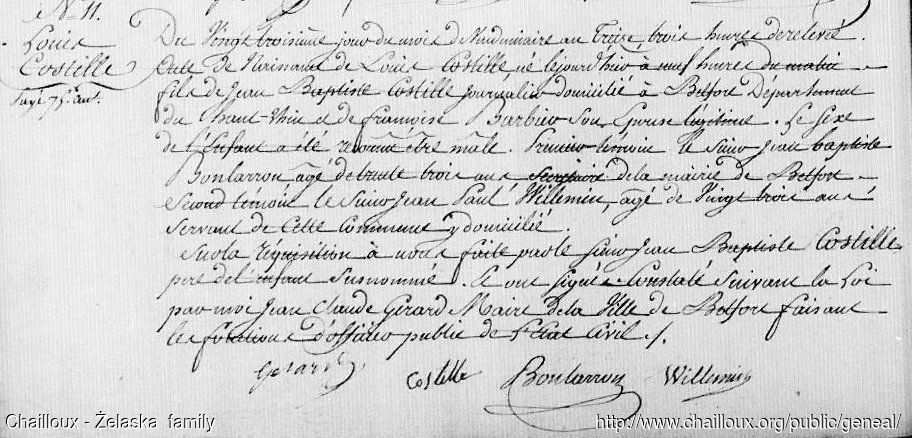 N° 11.
Louis
Costille
Du Vingt troisième jour du mois de Vendemiaire an Treize, trois heures de relevée.
Acte de Naissance de Louis Costille, né le jourd'huy à neuf heures du matin
fils de Jean Baptiste Costille journalier domicilié à Belfort Département
du haut-Rhin et de françoise Barbier Son Epouse légitime. Le Sexe
de l'Enfant a été reconnu être mâle. Premier témoin le Sieur Jean baptiste
Bonlarron agé de trente trois ans Secrétaire de la mairie de Belfort
Second témoin le Sieur Jean Paul Willemin, agé de Vingt trois ans
Servant de Cette Commune y domicilié.
Sur la réquisition à nous faite par le Sieur Jean Baptiste Costille
pere de l'enfant Susnommé. Et ont signé. Constaté Suivant la Loi
par moi Jean Claude Gerard Maire de la Ville de Belfort faisant
les fonctions d'officier public de l'Etat Civil ./.
Gerard Costille Bonlarron Willemin
Chailloux - Żelaska family http://www.chailloux.org/public/geneal/